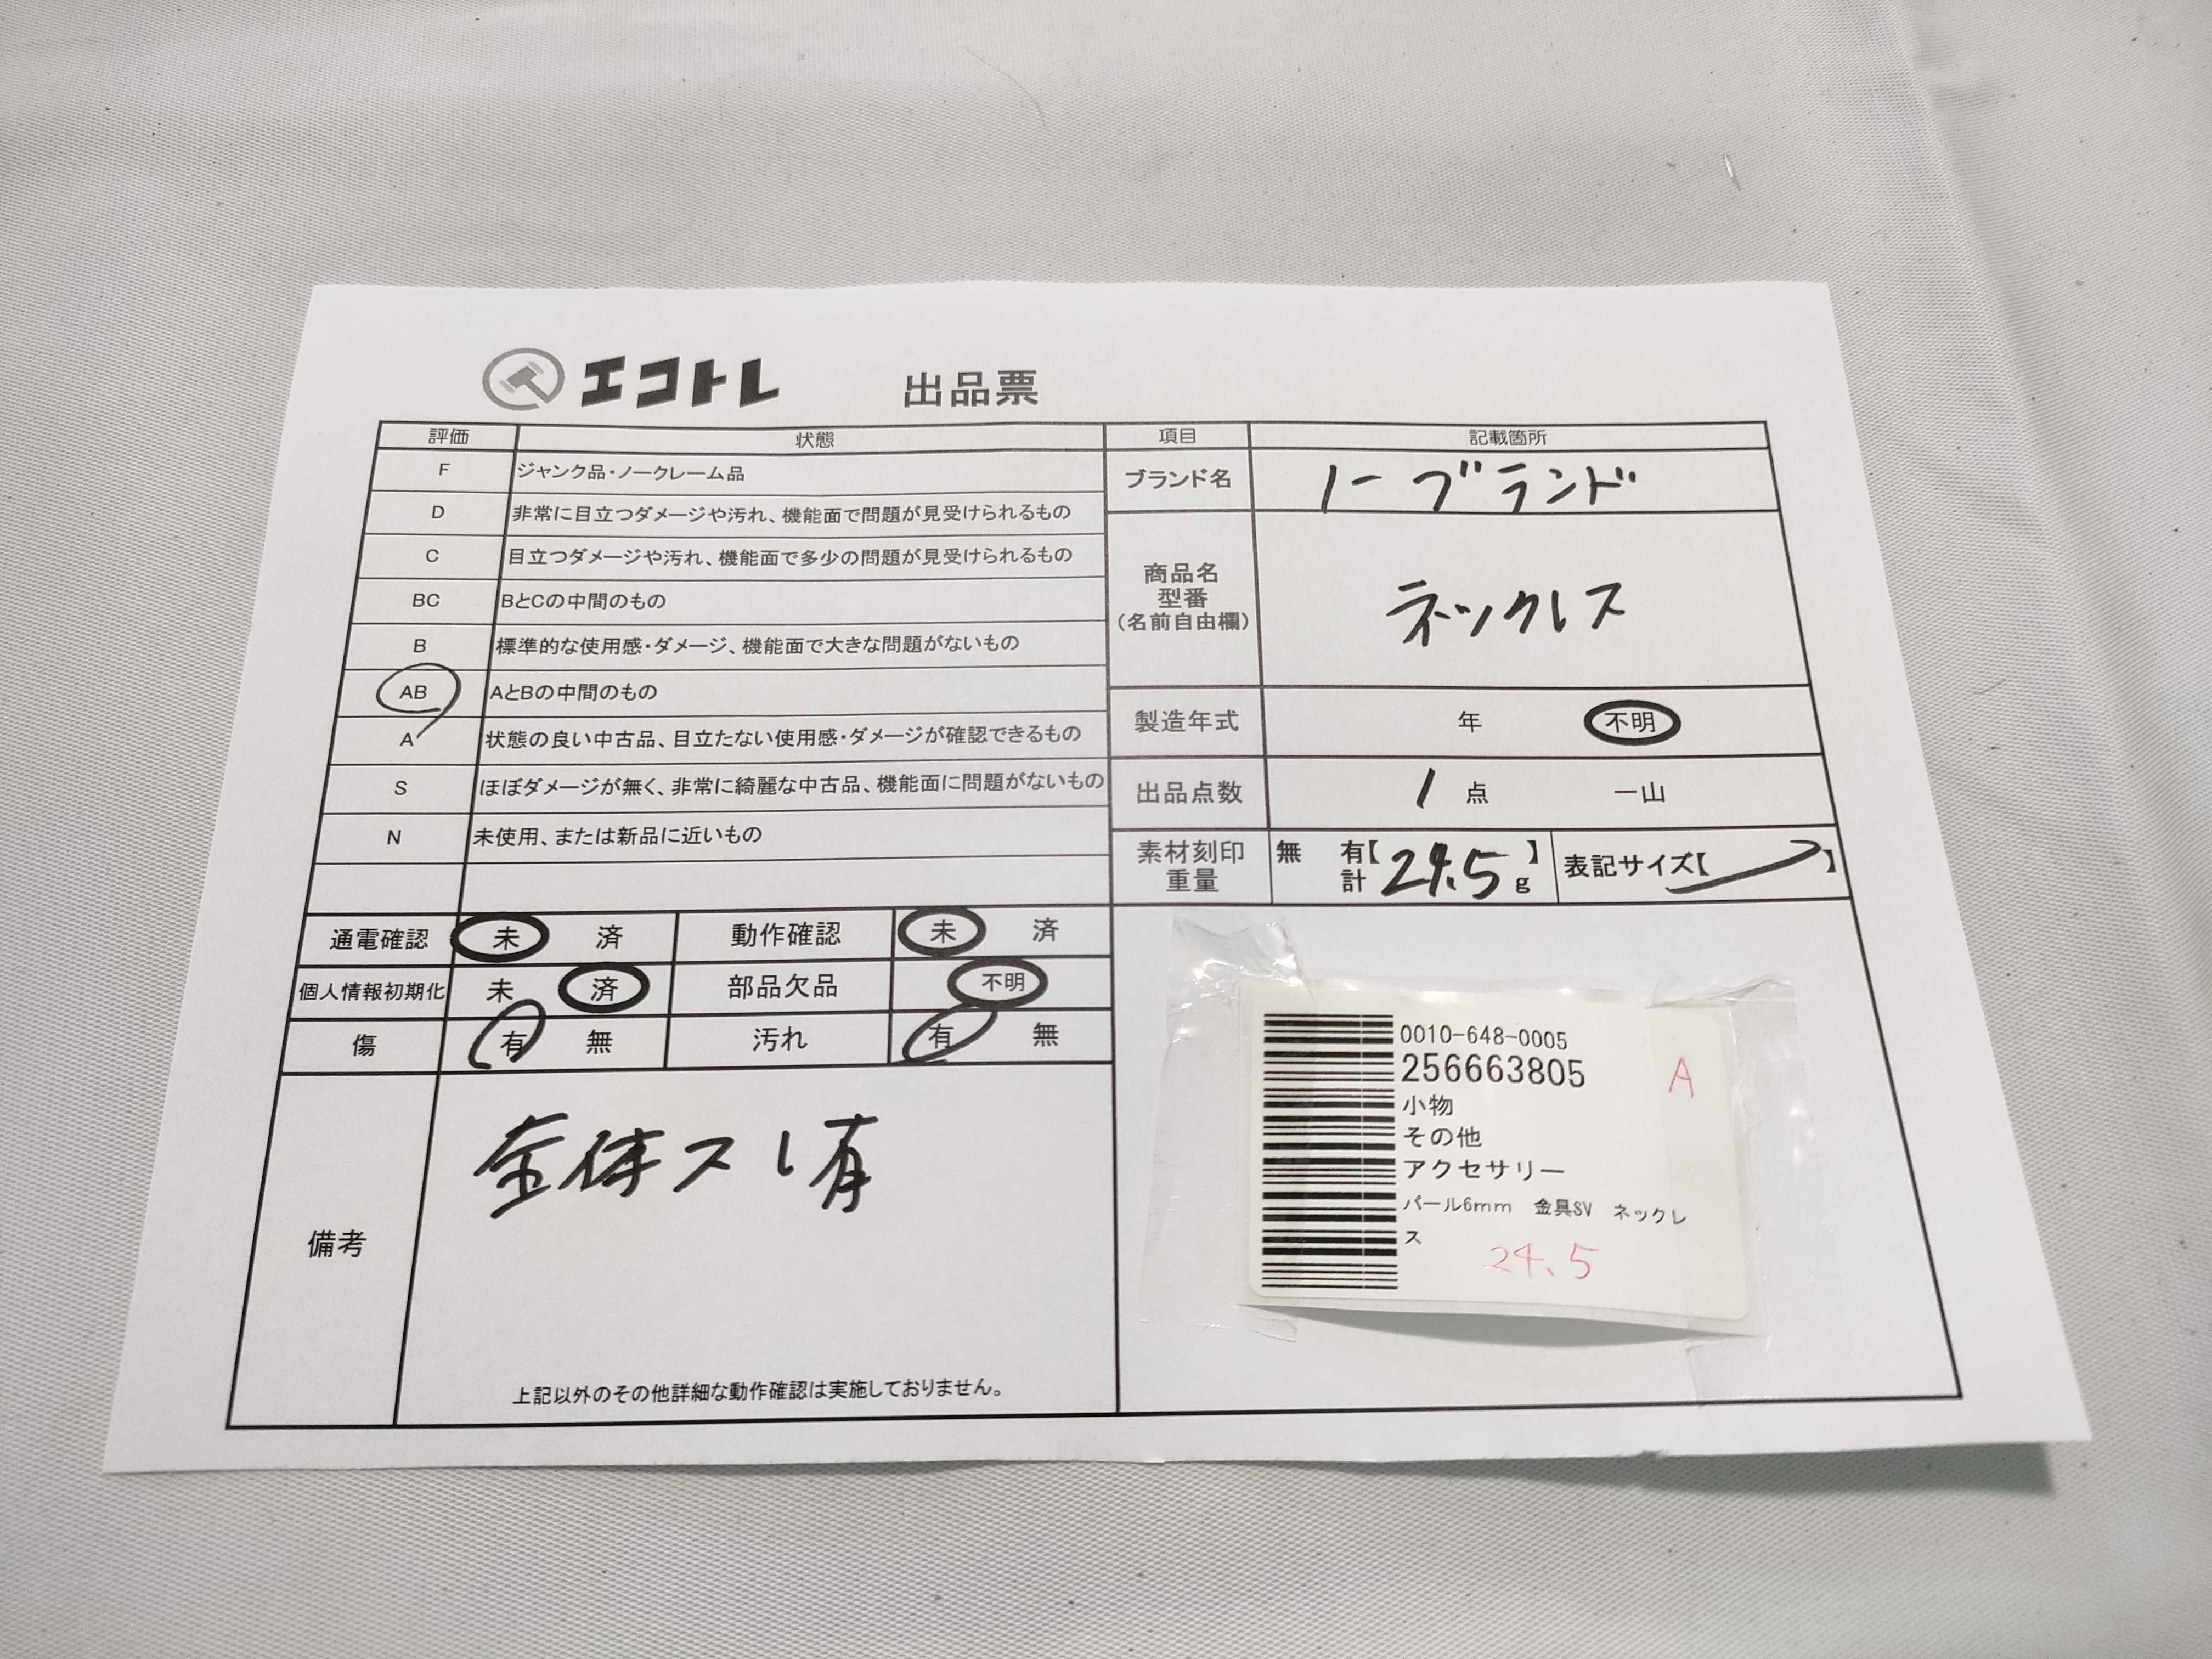 エコトレ 出品票
評価 状態
F ジャンク品・ノークレーム品
D 非常に目立つダメージや汚れ、機能面で問題が見受けられるもの
C 目立つダメージや汚れ、機能面で多少の問題が見受けられるもの
BC BとCの中間のもの
B 標準的な使用感・ダメージ、機能面で大きな問題がないもの
AB AとBの中間のもの
A 状態の良い中古品、目立たない使用感・ダメージが確認できるもの
S ほぼダメージが無く、非常に綺麗な中古品、機能面に問題がないもの
N 未使用、または新品に近いもの
項目 記載箇所
ブランド名 ノーブランド
商品名
型番
(名前自由欄)
ネックレス
製造年式 年 不明
出品点数 1 点 一山
素材刻印 無 有【 】
重量 計 24.5 g
表記サイズ【 】
通電確認 未 済 動作確認 未 済
個人情報初期化 未 済 部品欠品 不明
傷 有 無 汚れ 有 無
備考
全体スレ有
上記以外のその他詳細な動作確認は実施しておりません。
0010-648-0005
256663805 A
小物
その他
アクセサリー
パール6mm 金具SV ネックレ
ス
24.5